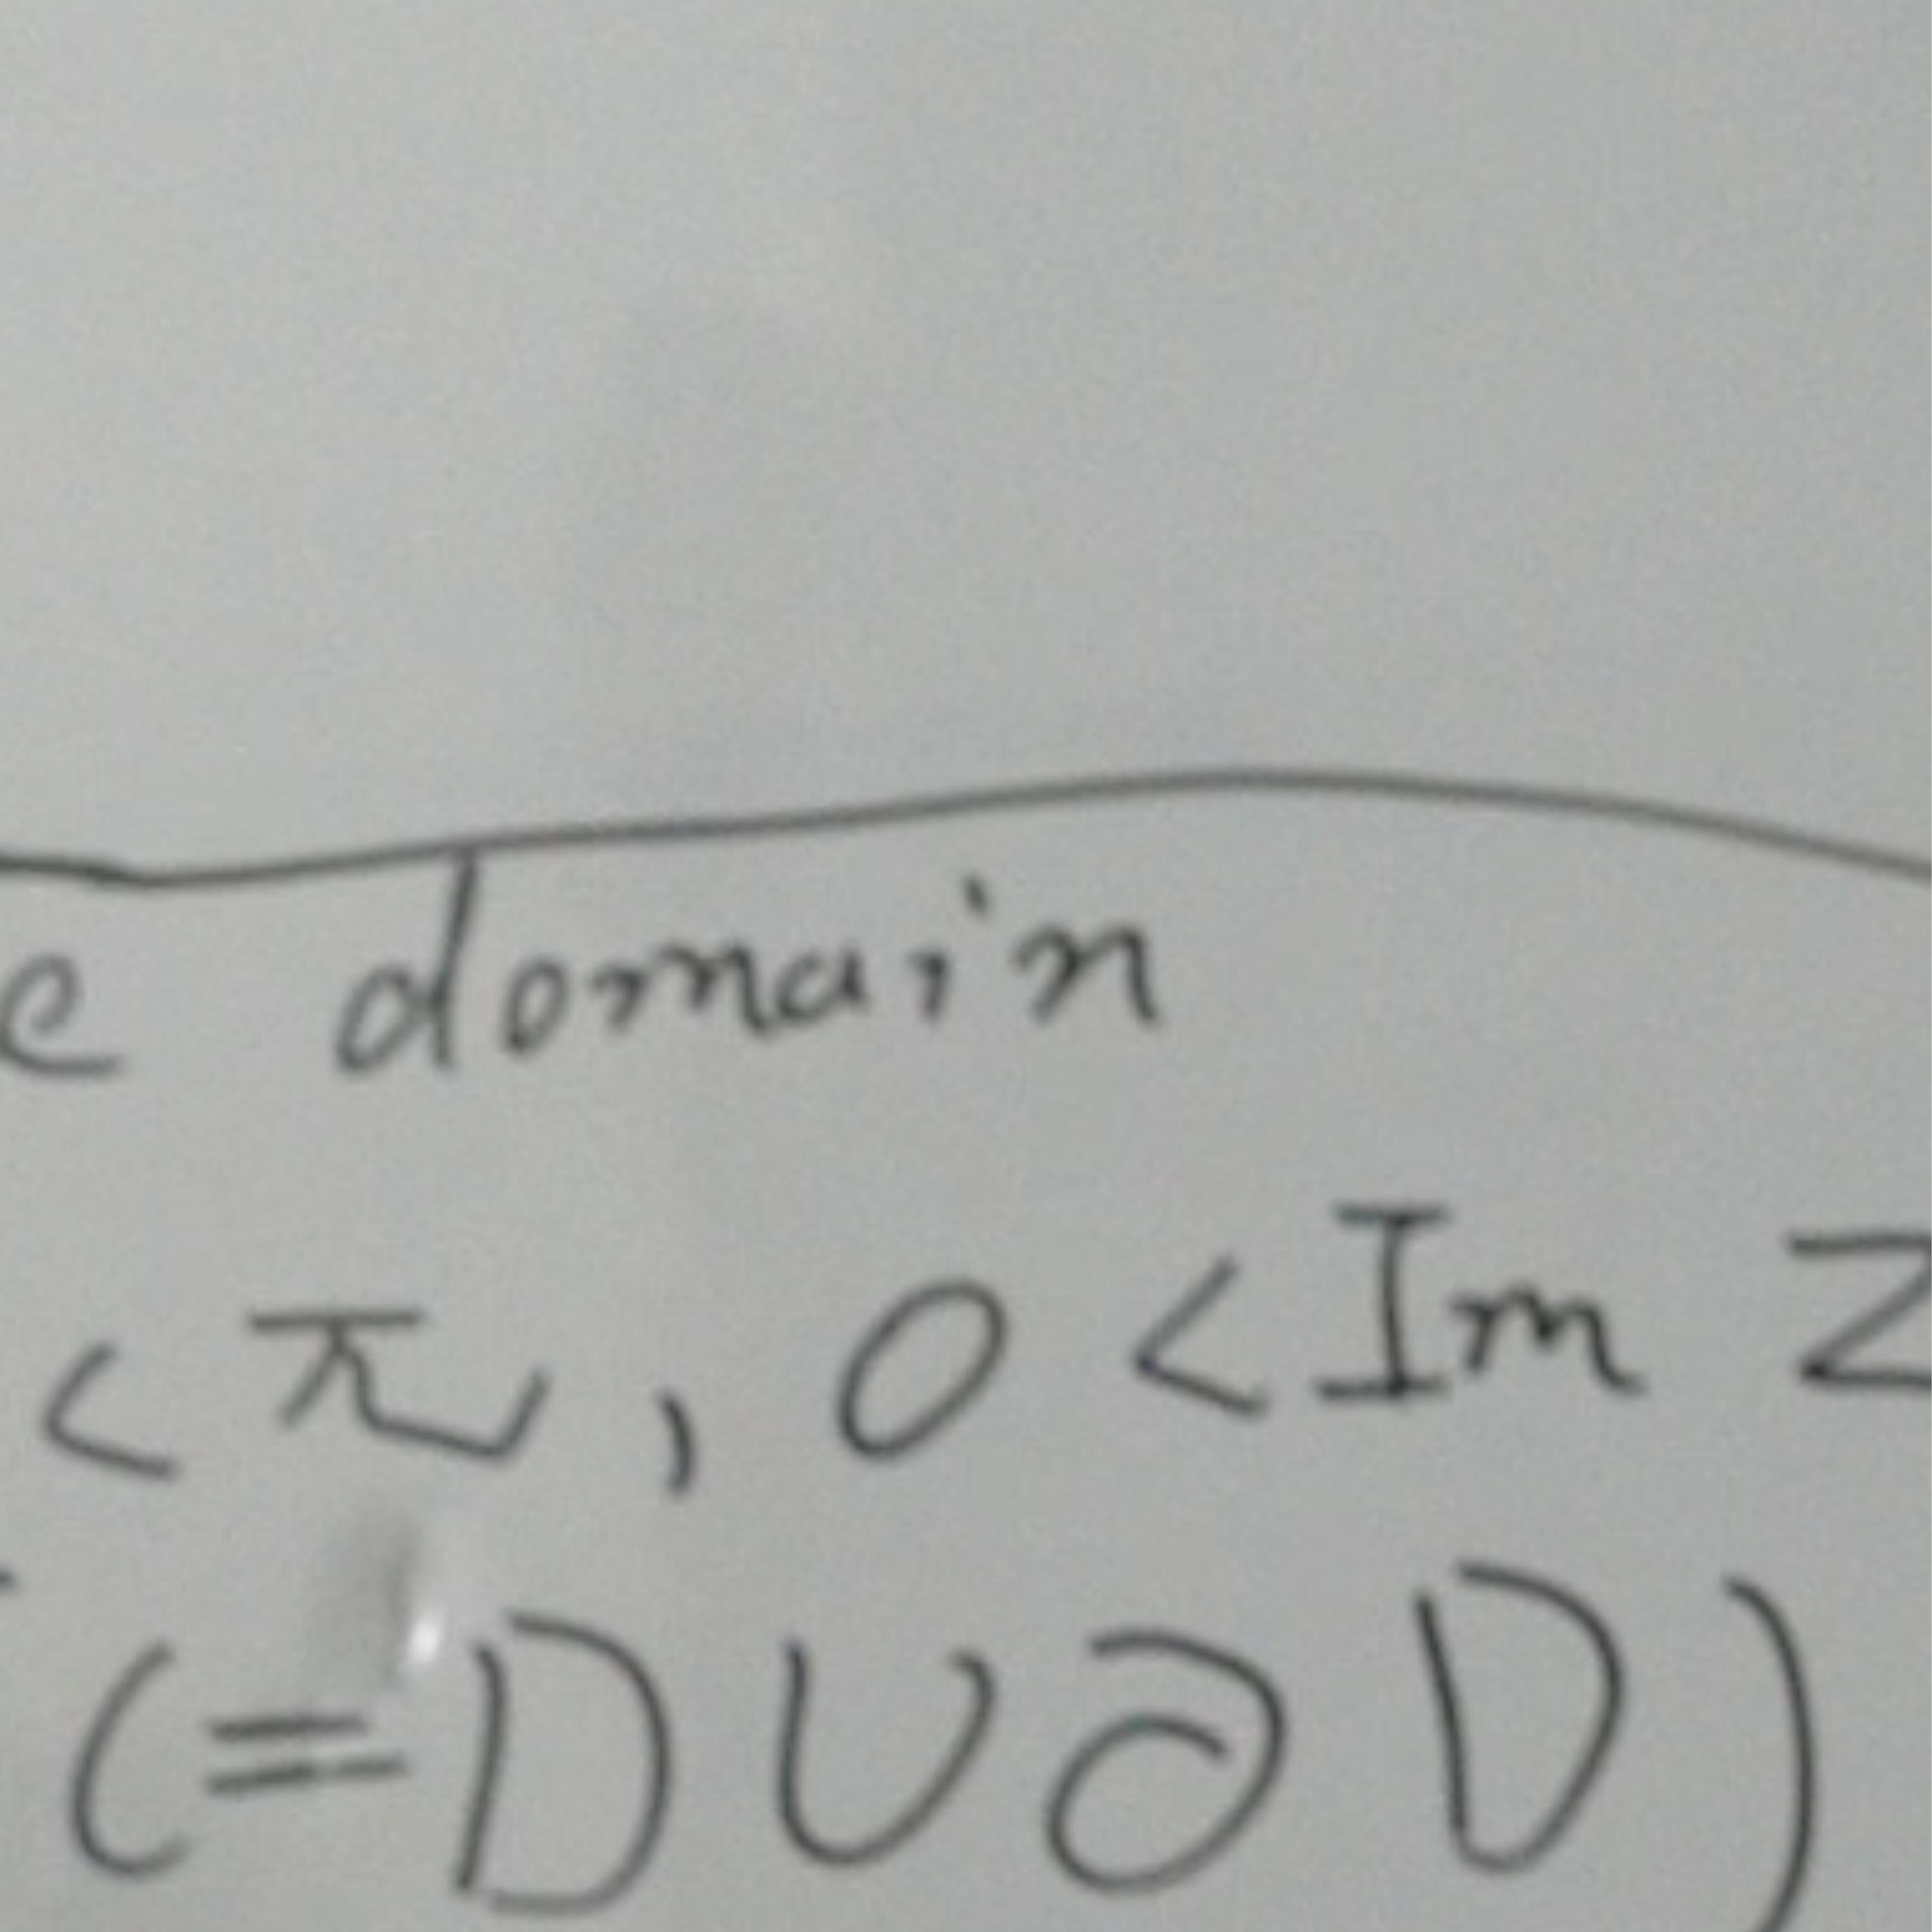 e domain
< π, 0 < Im z
(= D ∪ ∂ D)